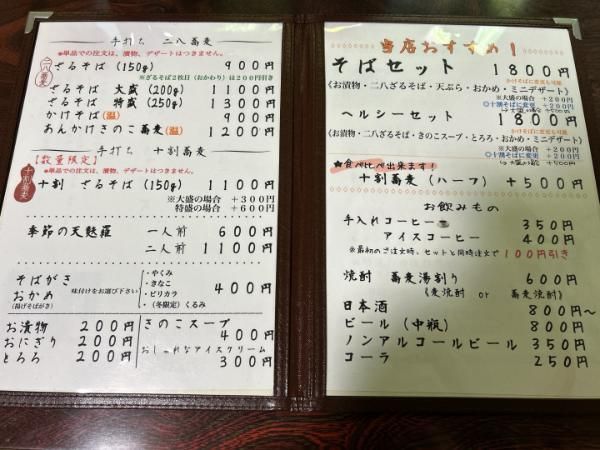 手打ち 二八蕎麦
※単品での注文は、漬物、デザートはつきません。
二八蕎麦
ざるそば (150g) 900円
※ざるそば2枚目(おかわり)は200円引き
ざるそば 大盛 (200g) 1100円
ざるそば 特盛 (250g) 1300円
かけそば (温) 900円
あんかけきのこ蕎麦 (温) 1200円
手打ち 十割蕎麦
【数量限定】
※単品での注文は、漬物、デザートはつきません。
十割蕎麦
十割 ざるそば (150g) 1100円
※大盛の場合 +300円
特盛の場合 +600円
季節の天麩羅 一人前 600円
二人前 1100円
そばがき
おかめ
(揚げそばがき)
味付けをお選び下さい
・やくみ
・きなこ
・ピリカラ
・(冬限定)くるみ
400円
お漬物 200円
おにぎり 200円
とろろ 200円
きのこスープ
400円
おしゃれなアイスクリーム
300円
当店おすすめ!
そばセット 1800円
かけそばに変更も可能
(お漬物・二八ざるそば・天ぷら・おかめ・ミニデザート)
※大盛の場合 +200円
◎十割そばに変更 +200円
ヘルシーセット 1800円
かけそばに変更も可能
(お漬物・二八ざるそば・きのこスープ・とろろ・おかめ・ミニデザート)
※大盛の場合 +200円
◎十割そばに変更 +200円
★食べ比べ出来ます!
十割蕎麦 (ハーフ) +500円
お飲みもの
手入れコーヒー 350円
アイスコーヒー 400円
※最初のご注文時、セットと同時注文で100円引き
焼酎 蕎麦湯割り 600円
(麦焼酎 or 蕎麦焼酎)
日本酒 800円~
ビール (中瓶) 800円
ノンアルコールビール 350円
コーラ 250円